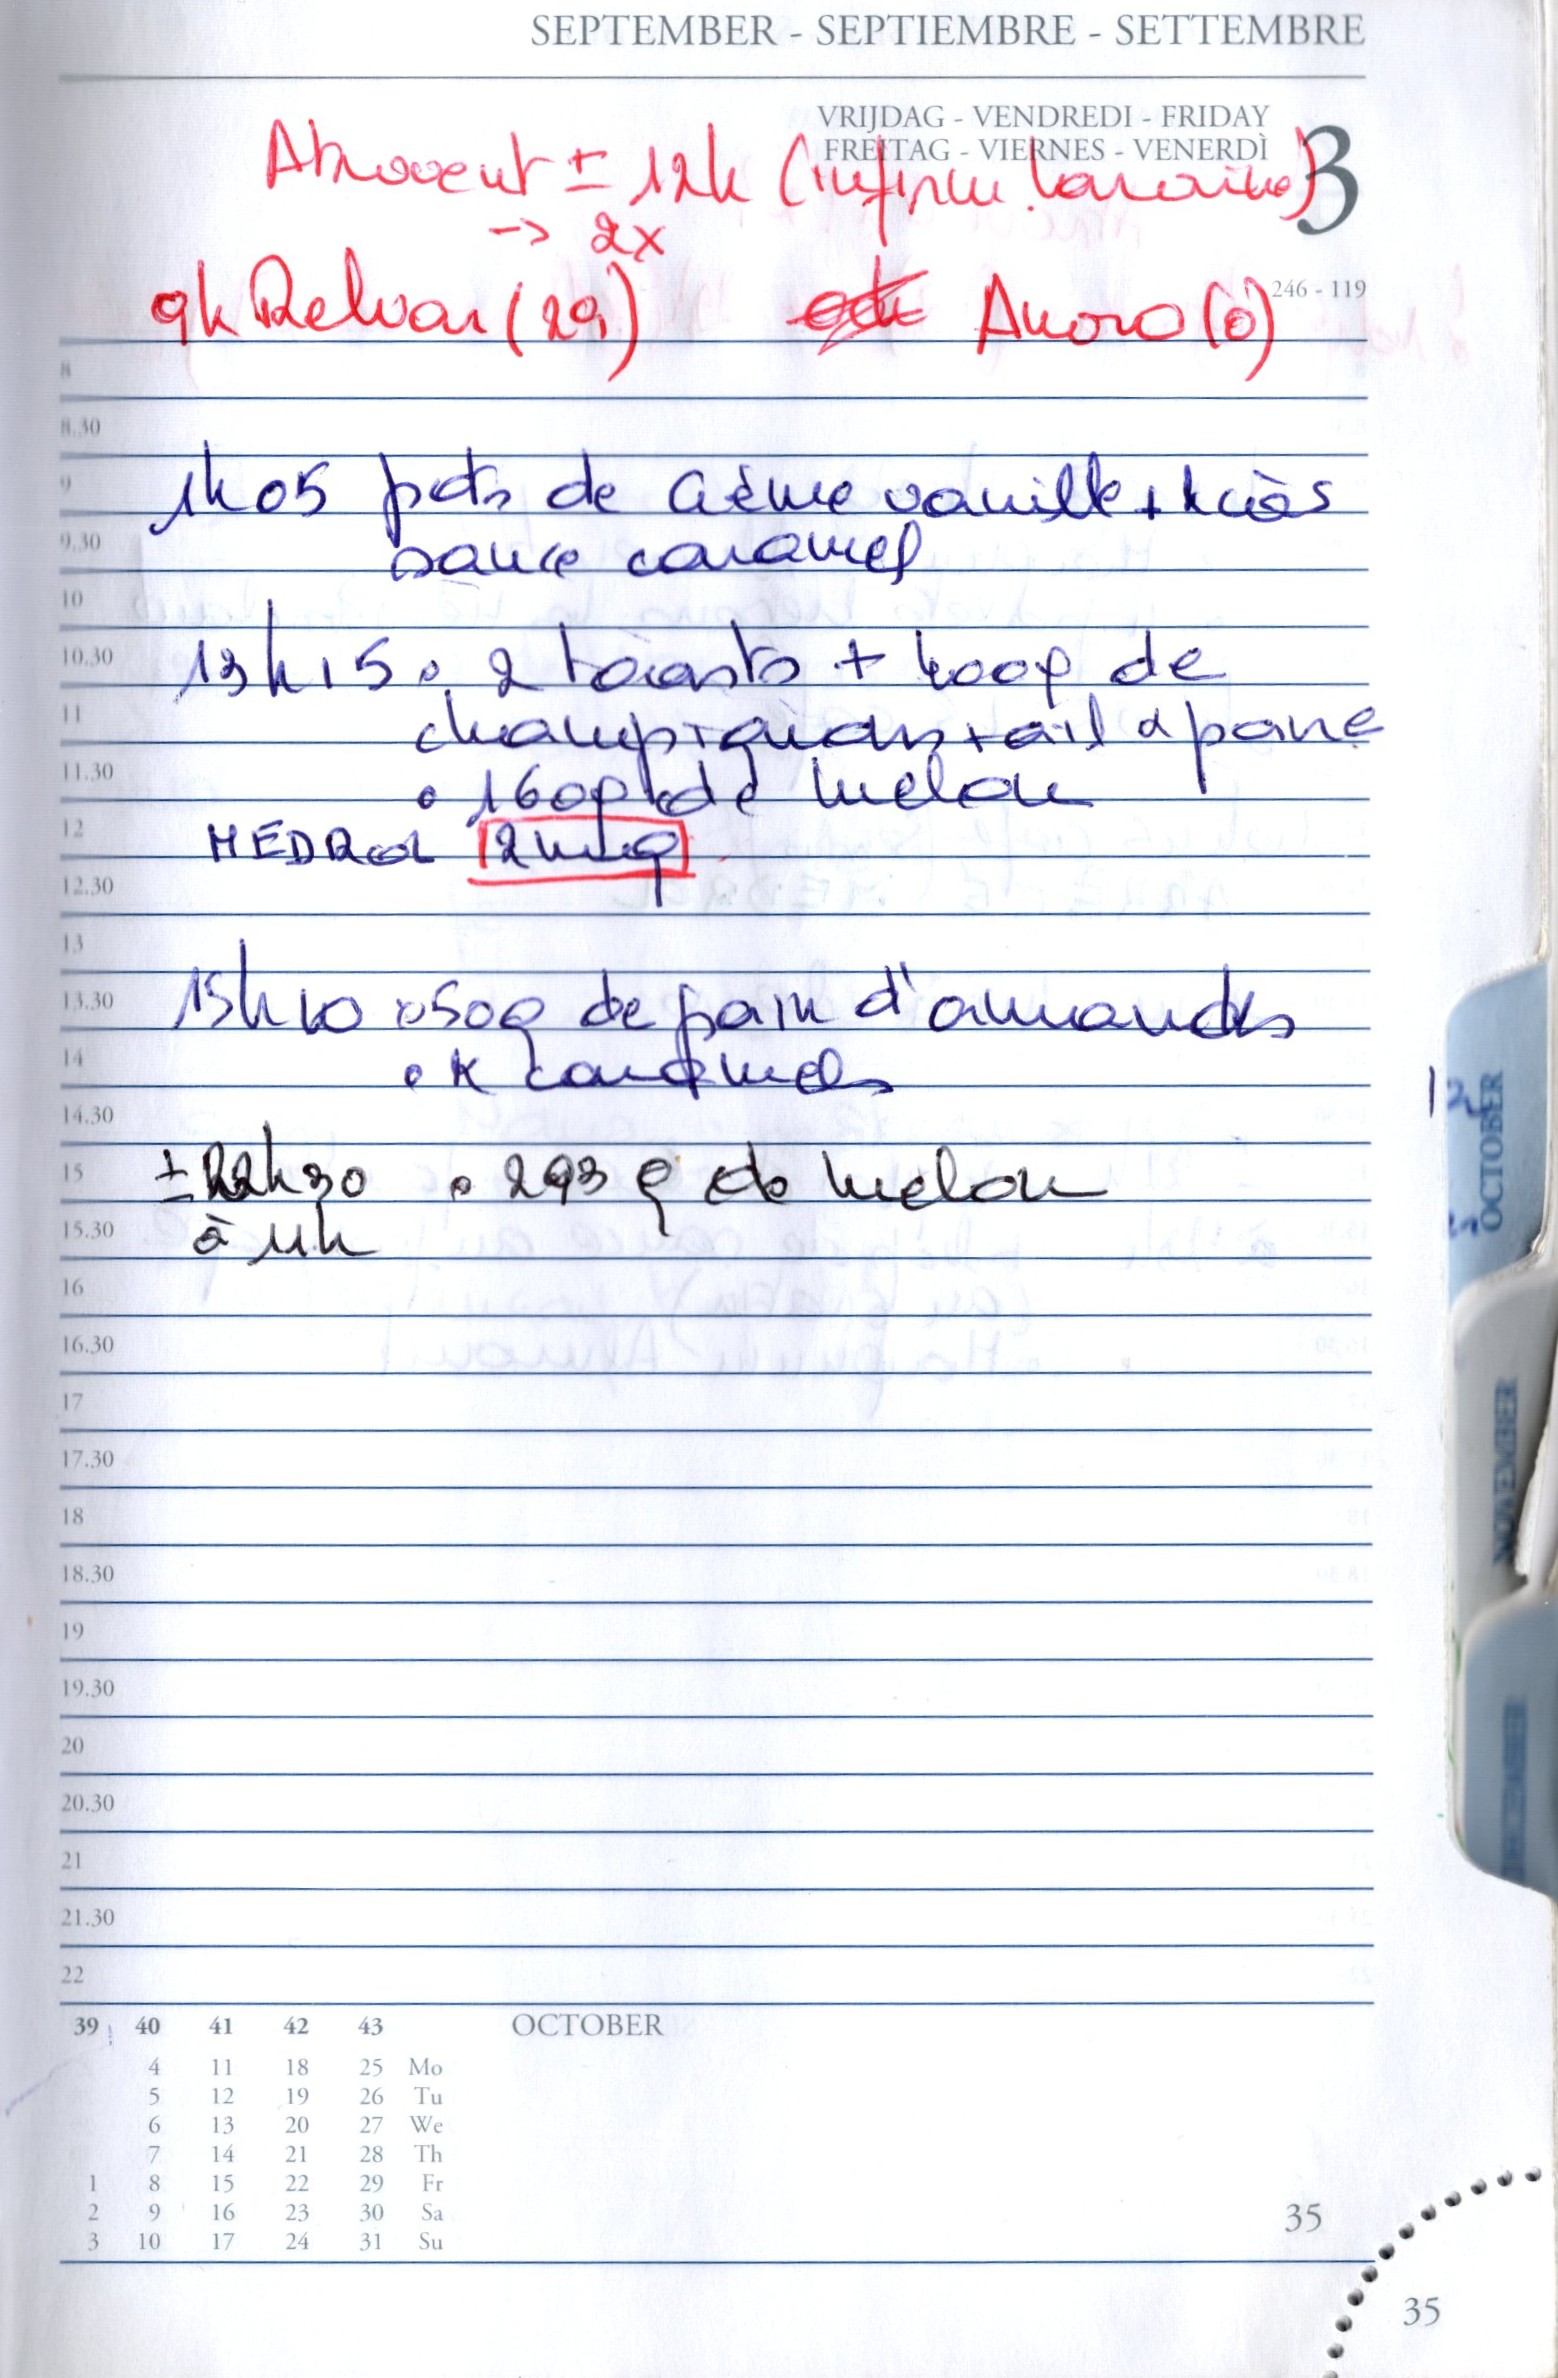 SEPTEMBER - SEPTIEMBRE - SETTEMBRE
VRIJDAG - VENDREDI - FRIDAY
FREITAG - VIERNES - VENERDÌ
3
Atrovent ± 12h (infirm.
→ 2x
246 - 119
9h Relvar (29) Anoro (0)
8
8.30
9
1h05 pots de crème vanille +
9.30
sauce caramel
10
10.30
13h15 • 2 toasts + 400g de
11
champignons + ail
11.30
• 160g de melon
12
MEDROL 2mg
12.30
13
13.30
15h10 • 50g de pain d'amandes
14
caramels
14.30
15
±22h30 • 293 g de melon
15.30
à 11h
16
16.30
17
17.30
18
18.30
19
19.30
20
20.30
21
21.30
22
39 40 41 42 43 OCTOBER
4 11 18 25 Mo
5 12 19 26 Tu
6 13 20 27 We
7 14 21 28 Th
1 8 15 22 29 Fr
2 9 16 23 30 Sa
3 10 17 24 31 Su
35
35
OCTOBER
NOVEMBER